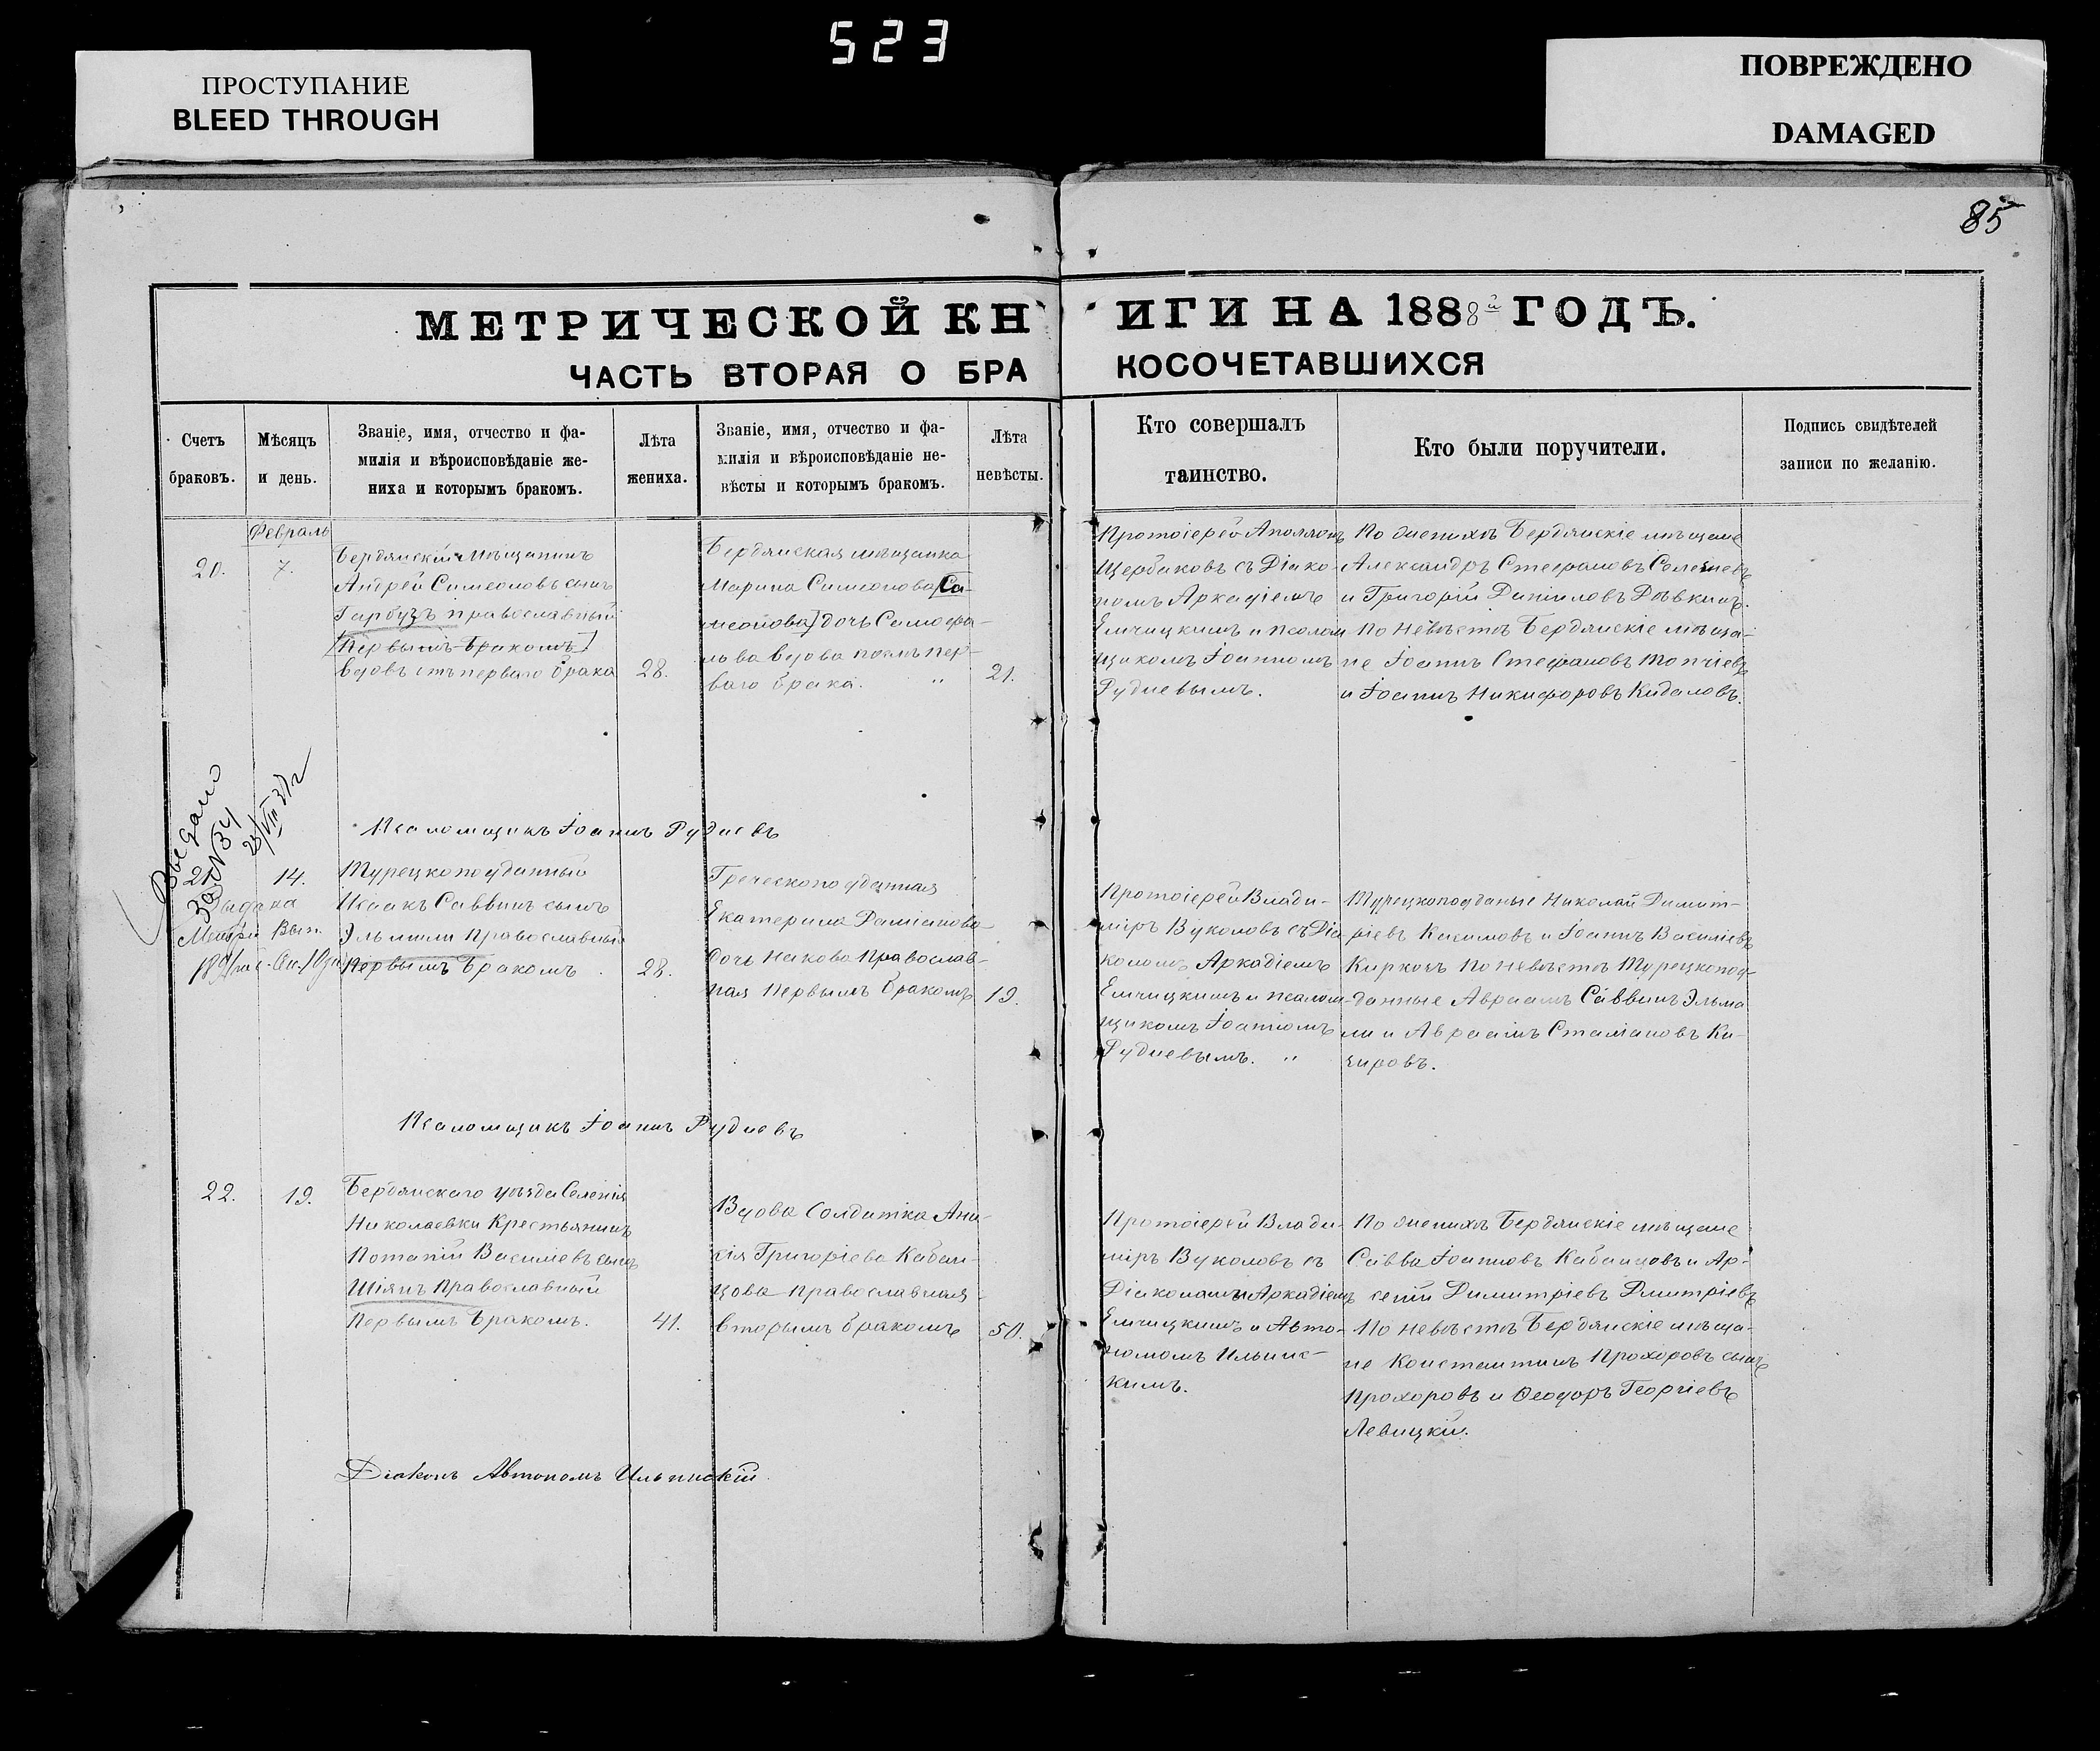 523
ПРОСТУПАНИЕ
BLEED THROUGH
ПОВРЕЖДЕНО
DAMAGED
85
МЕТРИЧЕСКОЙ КН
ИГИ НА 1888й ГОДЪ.
ЧАСТЬ ВТОРАЯ О БРА
КОСОЧЕТАВШИХСЯ
Счетъ
браковъ.
Мѣсяцъ
и день.
Званіе, имя, отчество и фа-
милія и вѣроисповѣданіе же-
ниха и которымъ бракомъ.
Лѣта
жениха.
Званіе, имя, отчество и фа-
милія и вѣроисповѣданіе не-
вѣсты и которымъ бракомъ.
Лѣта
невѣсты.
Кто совершалъ
таинство.
Кто были поручители.
Подпись свидѣтелей
записи по желанію.
Февраль
20.
7.
Бердянскій Мѣщанинъ
Андрей Симеоновъ сынъ
Гарбузъ православный
[Первымъ Бракомъ]
вдовъ отъ перваго брака
28.
Бердянская мѣщанка
Марина Симеонова [Си-
меонова] дочь
вдова послѣ пер-
ваго брака. "
21.
Протоіерей Аполлонъ
Щербаковъ съ Діако-
номъ Аркадіемъ
Емчицкимъ и псалом
щикомъ Іоанномъ
Рудневымъ.
По женихѣ Бердянскіе мѣщане
Александръ Стефановъ Селезневъ
и Григорій Даніиловъ Дѣвкинъ.
По невѣстѣ Бердянскіе мѣща-
не Іоаннъ Стефановъ Топчіевъ
и Іоаннъ Никифоровъ Кидаловъ.
Псаломщикъ Іоаннъ Рудневъ
Выдано
за № 34
23/VIII 31 г
21.
14.
Выдана
Метри. Вып.
Турецкоподданный
Исаакъ Саввинъ сынъ
Эльмили православный
Первымъ Бракомъ
28.
Греческоподданная
Екатерина Даміанова
дочь Накова Православ-
ная Первымъ бракомъ
19.
Протоіерей Влади-
міръ Вуколовъ съ Діа
кономъ Аркадіемъ
Емчицкимъ и псалом-
щикомъ Іоанномъ
Рудневымъ. "
Турецкоподданые Николай Димит-
ріевъ Касимовъ и Іоаннъ Василіевъ
Киркочъ По невѣстѣ Турецкопод-
данные Авраамъ Саввинъ Эльма
ли и Авраамъ Стаматовъ Ка-
зировъ.
Псаломщикъ Іоаннъ Рудневъ
22.
19.
Бердянскаго уѣзда Селенія
Николаевки Крестьянинъ
Потапій Василіевъ сынъ
Шіянъ Православный
Первымъ Бракомъ.
41.
Вдова Солдатка Ани-
сія Григоріева Кабан-
цова Православная
вторымъ бракомъ
50.
Протоіерей Влади-
міръ Вуколовъ съ
Діаконами Аркадіемъ
Емчицкимъ и Авто-
номомъ Ильинс-
кимъ.
По женихѣ Бердянскіе мѣщане
Савва Іоанновъ Кабанцовъ и Ар-
сеній Димитріевъ Дмитріевъ
По невѣстѣ Бердянскіе мѣща-
не Константинъ Прохоровъ сынъ
Прохоровъ и Ѳеодоръ Георгіевъ
Левицкій.
Діаконъ Автономъ Ильинскій